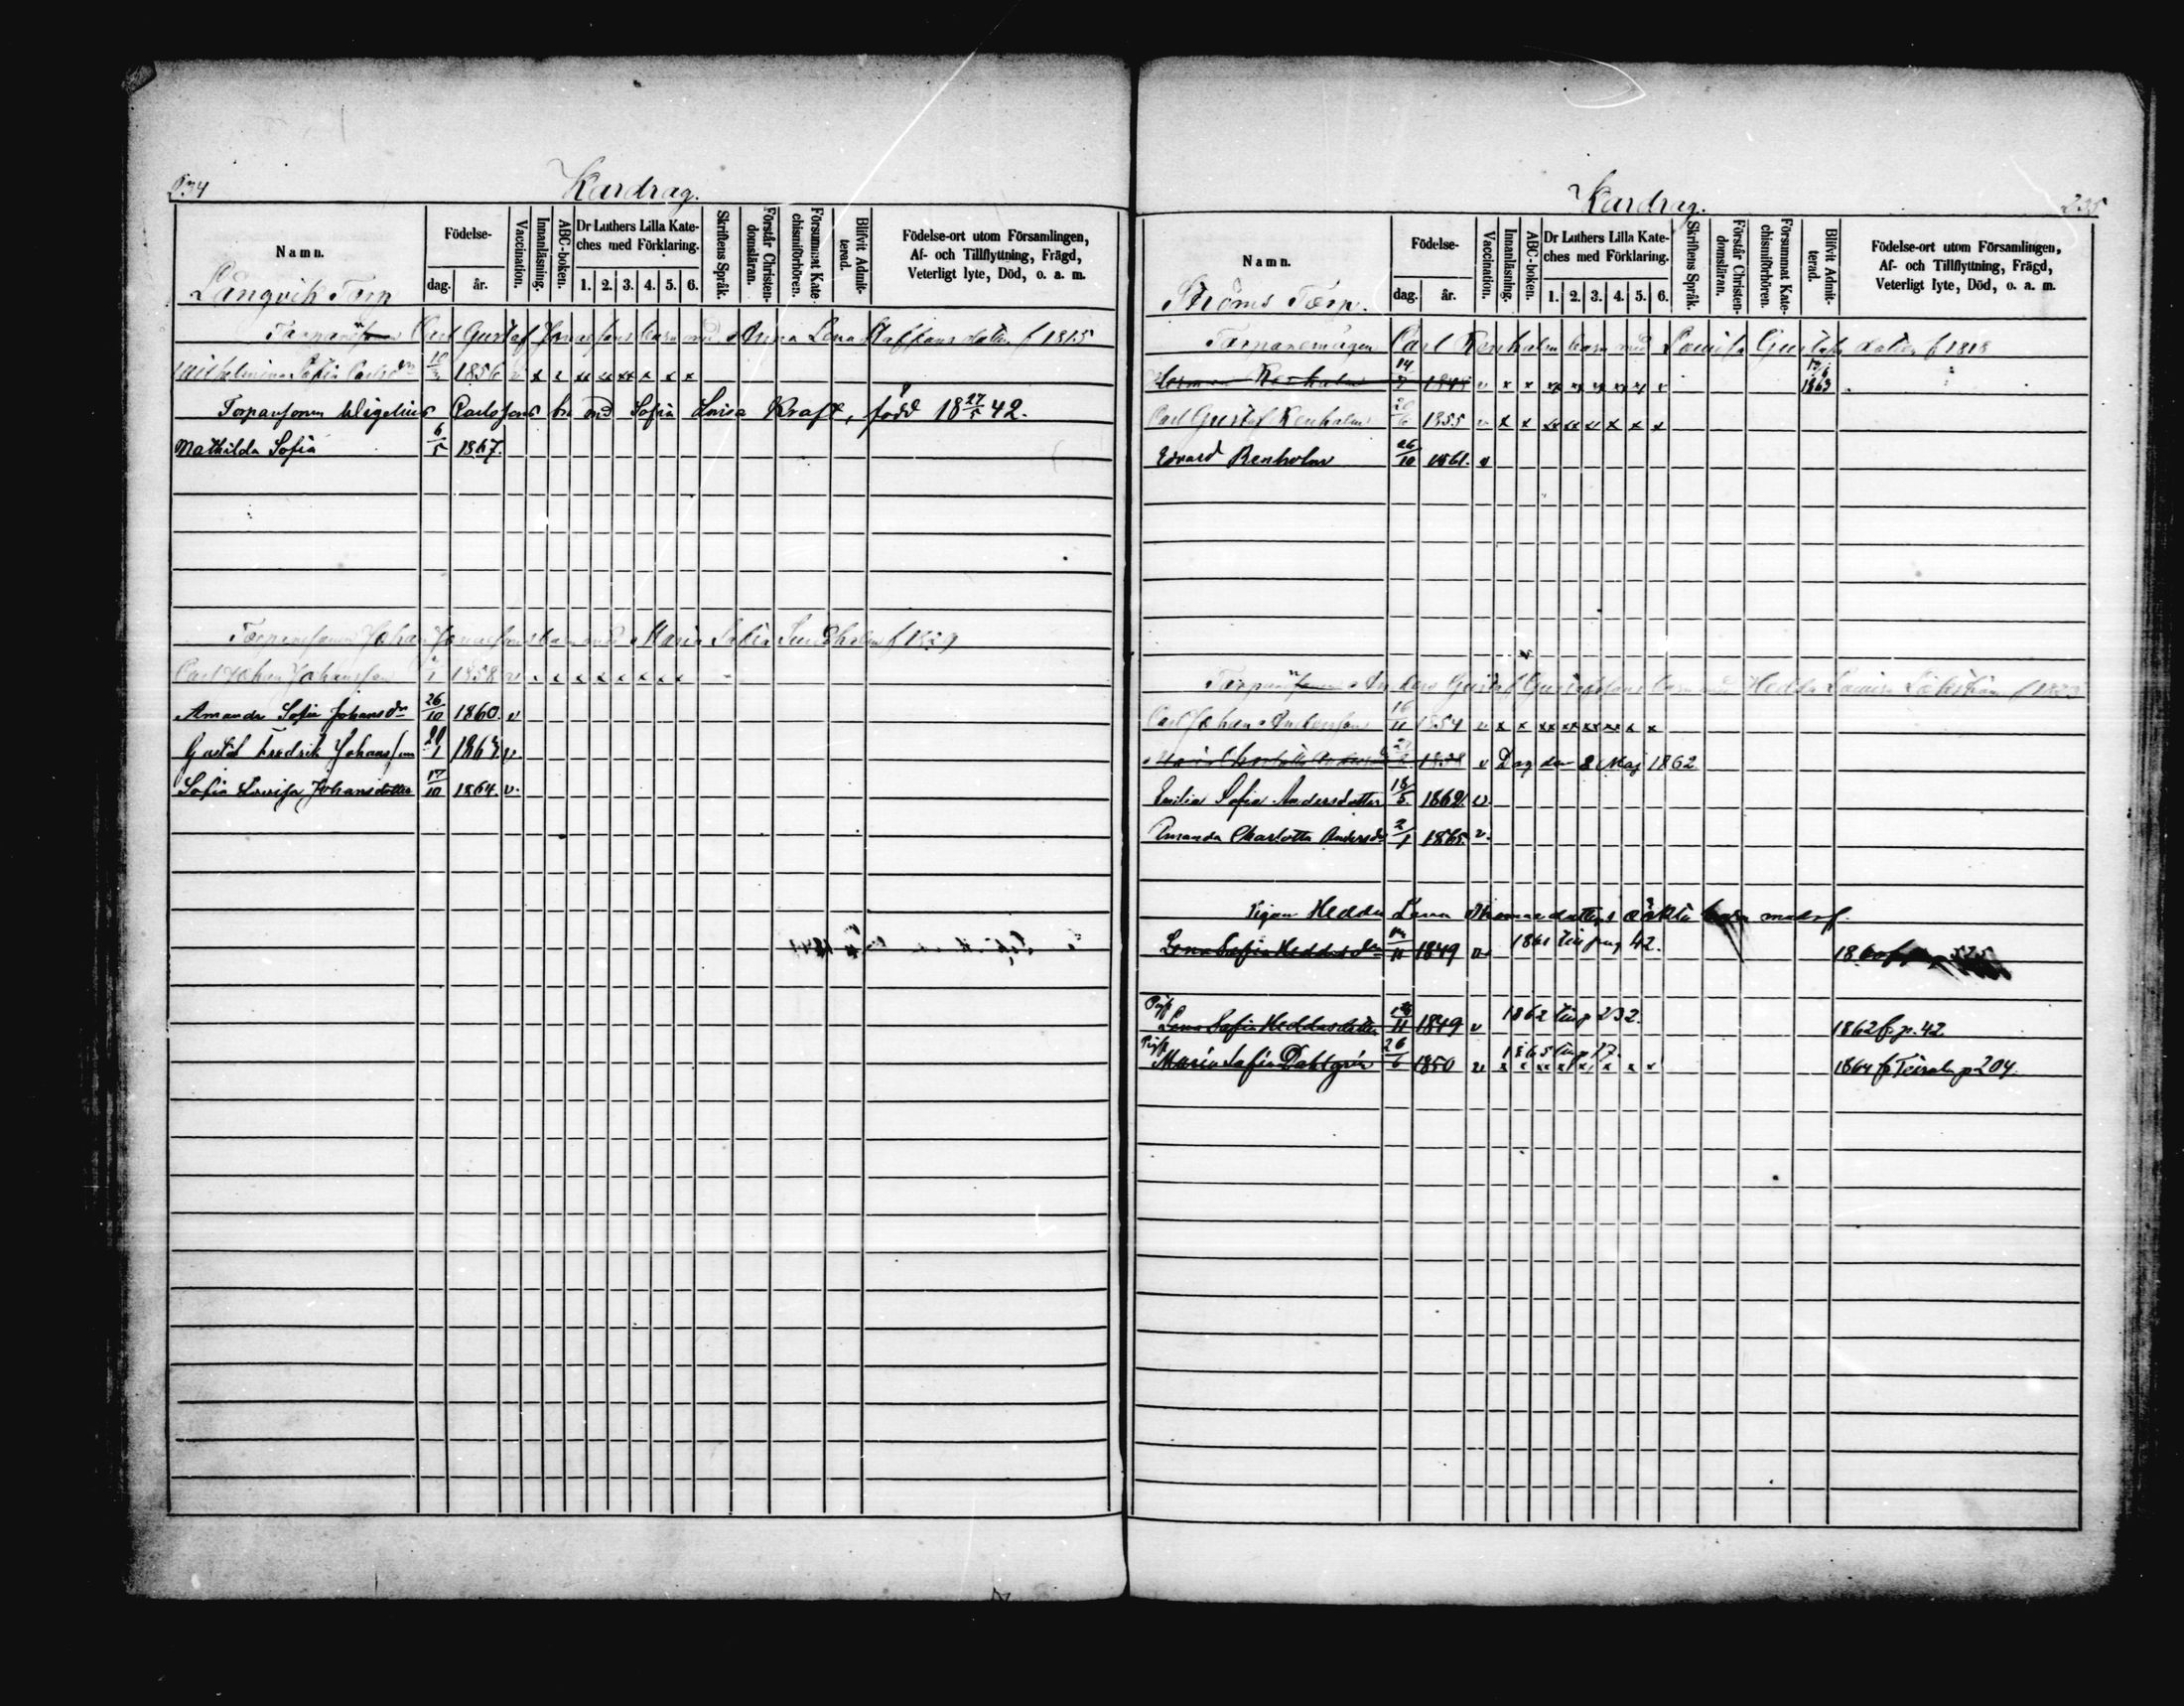 234
Kardrag.
Namn.
Födelse-
dag. år.
Vaccination.
Innanläsning.
ABC-boken.
Dr Luthers Lilla Kate-
ches med Förklaring.
1. 2. 3. 4. 5. 6.
Skriftens Språk.
Förstår Christen-
domsläran.
Försummat Kate-
chismiförhören.
Blifvit Admit-
terad.
Födelse-ort utom Församlingen,
Af- och Tillflyttning, Frägd,
Veterligt lyte, Död, o. a. m.
Långvik Torp
Carl Gustaf Jonassons barn med Anna Lena Staffansdotter f 1815
Wilhelmina Sofia Carlsdr 1856 v x x xx xx xx x x x
Torparsonen Wigelius Carlssons bn med Sofia Lovisa Kraft, född 18 27/5 42.
Mathilda Sofia 6/5 1867.
Torparsonen Johan Jonassons barn med Maria Sofia Sundholm f 1829
Carl Johan Johansson 1858 v x x x x x x x x
Amanda Sofia Johansdr 26/10 1860. v
Gustaf Fredrik Johansson 1867. v.
Sofia Lovisa Johansdotter 17/10 1864. v.
Kardrag.
235
Namn.
Födelse-
dag. år.
Vaccination.
Innanläsning.
ABC-boken.
Dr Luthers Lilla Kate-
ches med Förklaring.
1. 2. 3. 4. 5. 6.
Skriftens Språk.
Förstår Christen-
domsläran.
Försummat Kate-
chismiförhören.
Blifvit Admit-
terad.
Födelse-ort utom Församlingen,
Af- och Tillflyttning, Frägd,
Veterligt lyte, Död, o. a. m.
Ströms Torp.
Torparemågen Carl Renholms barn med Lovisa Gustafsdotter f 1818
Herman Renholm 14 v x x xx xx xx xx xx v 1863
Carl Gustaf Renholm 20/6 1855 v x x xx xx xx x x x
Edvard Renholm 26/10 1861. v
Anders Gustaf Gustafssons barn med Hedda Lovisa
Carl Johan Andersson 16/11 1854 v x x xx xx xx xx x x
Maria Charlotta 1858 v Dog den 8 Maj 1862
Emilia Sofia Andersdotter 18/5. 1862. v.
Amanda Charlotta Andersdr 2/1 1865. v.
Pigan Hedda Lena oäkta barn
Lena Sofia Heddasdr 11 1849 v. 1861 till pag 42.
Pig. Lena Sofia Heddasdotter 11 1849 v 1862 till p 232. 1862 fr. p. 42
Pig. Maria Sofia Dahlgrén 26/6 1850 v 1865 till p 17. x x xx xx x x x x 1864 fr Teisala p 204.